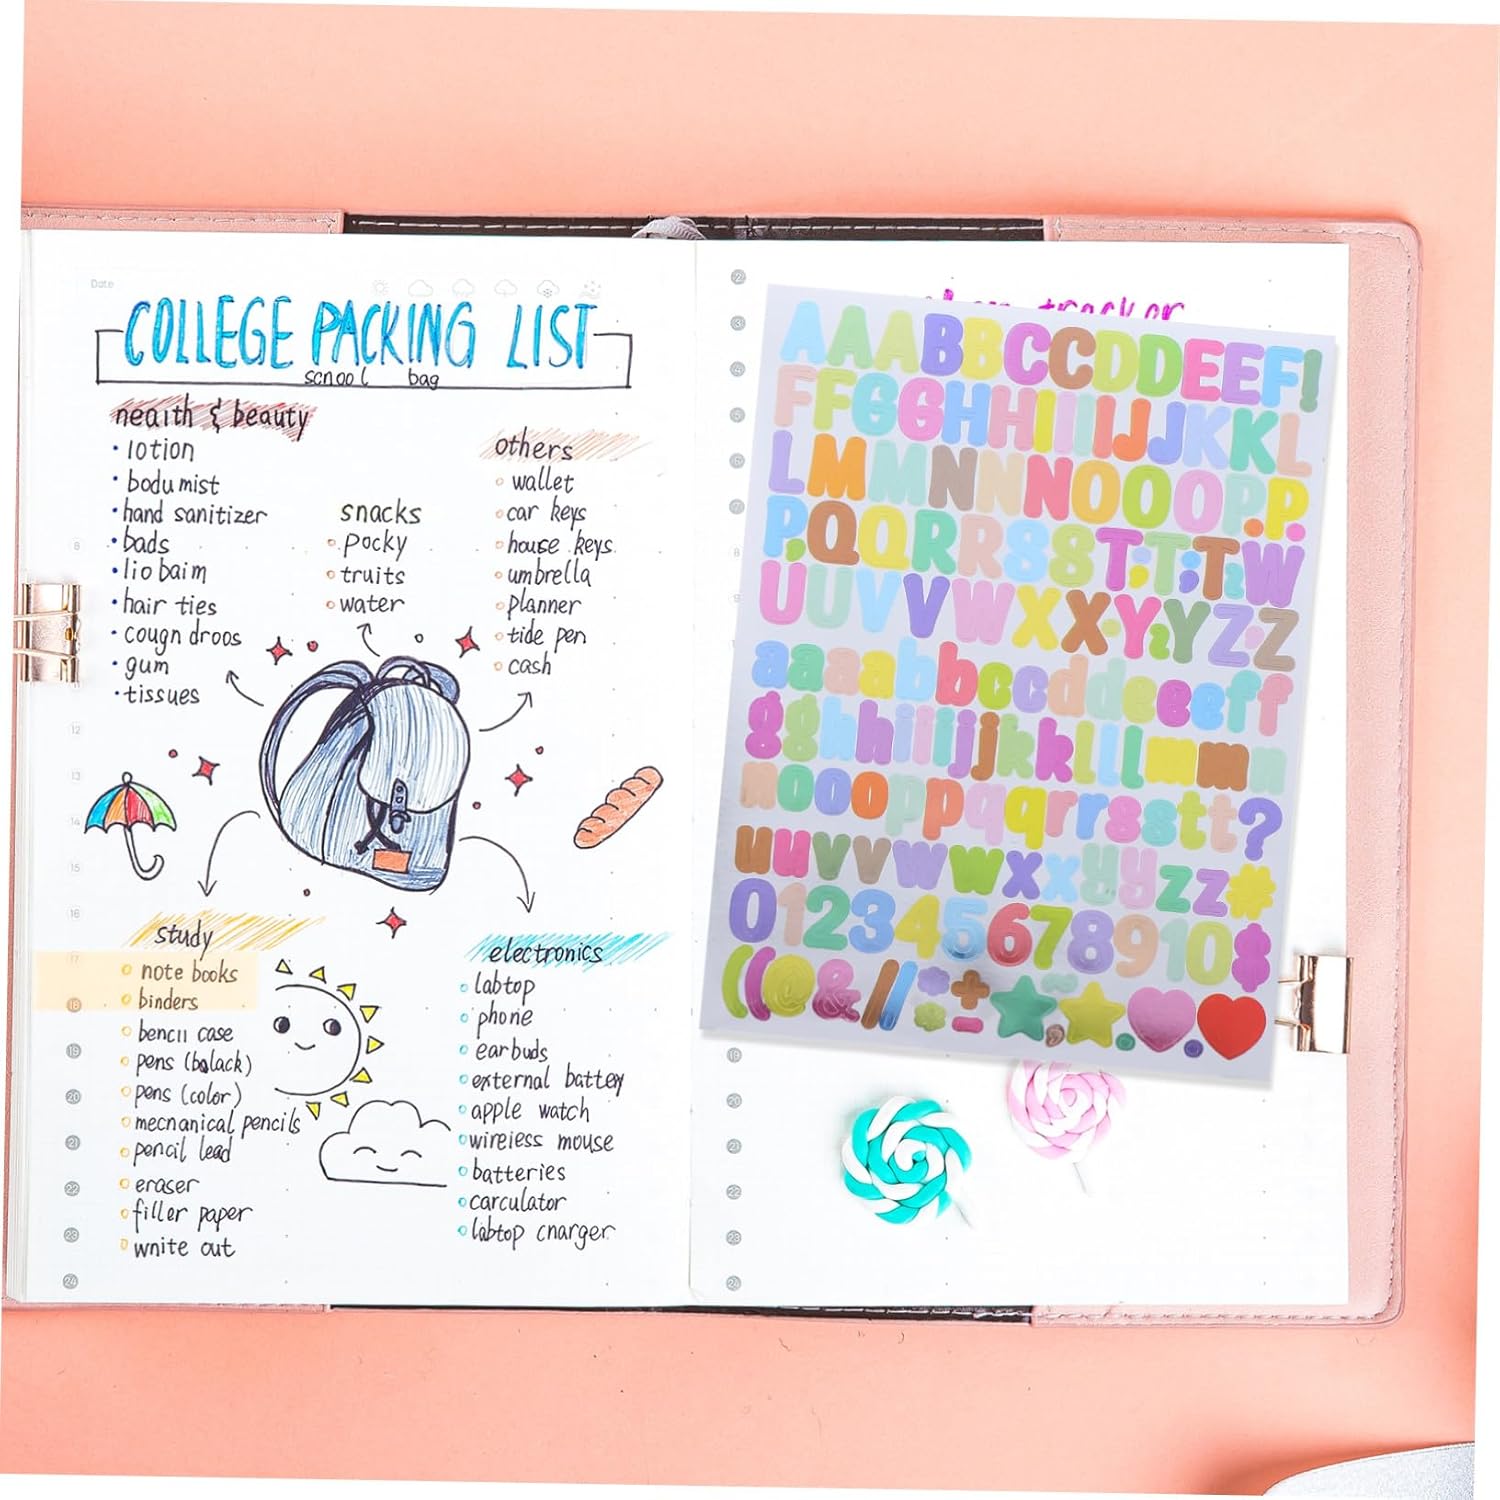 Date
COLLEGE PACKING LIST
scnool bag
neaith & beauty
lotion
bodumist
hand sanitizer
bads
lio baim
hair ties
cougn droos
gum
tissues
snacks
pocky
truits
water
others
wallet
car keys
house keys
umbrella
planner
tide pen
cash
study
note books
binders
bencil case
pens (balack)
pens (color)
mecnanical pencils
pencil lead
eraser
filler paper
wnite out
electronics
labtop
phone
earbuds
external battey
apple watch
wireiess mouse
batteries
carculator
labtop cnarger
8
12
13
14
15
16
17
18
19
20
21
22
23
24
tracker
2
3
4
5
6
7
8
9
AAABBCCDDEEF!
FFGGHHIIIJJKKL
LMMNNNOOOPP
P,QQRRSSTTTW
UUVVWXXYYZZ
aaaabbccddeeff
gghhiijjkklllmmn
nooopppqqrrsstt?
uuvvwwxxyyzz#
012345678910$
((@&//+
19
20
21
22
23
24